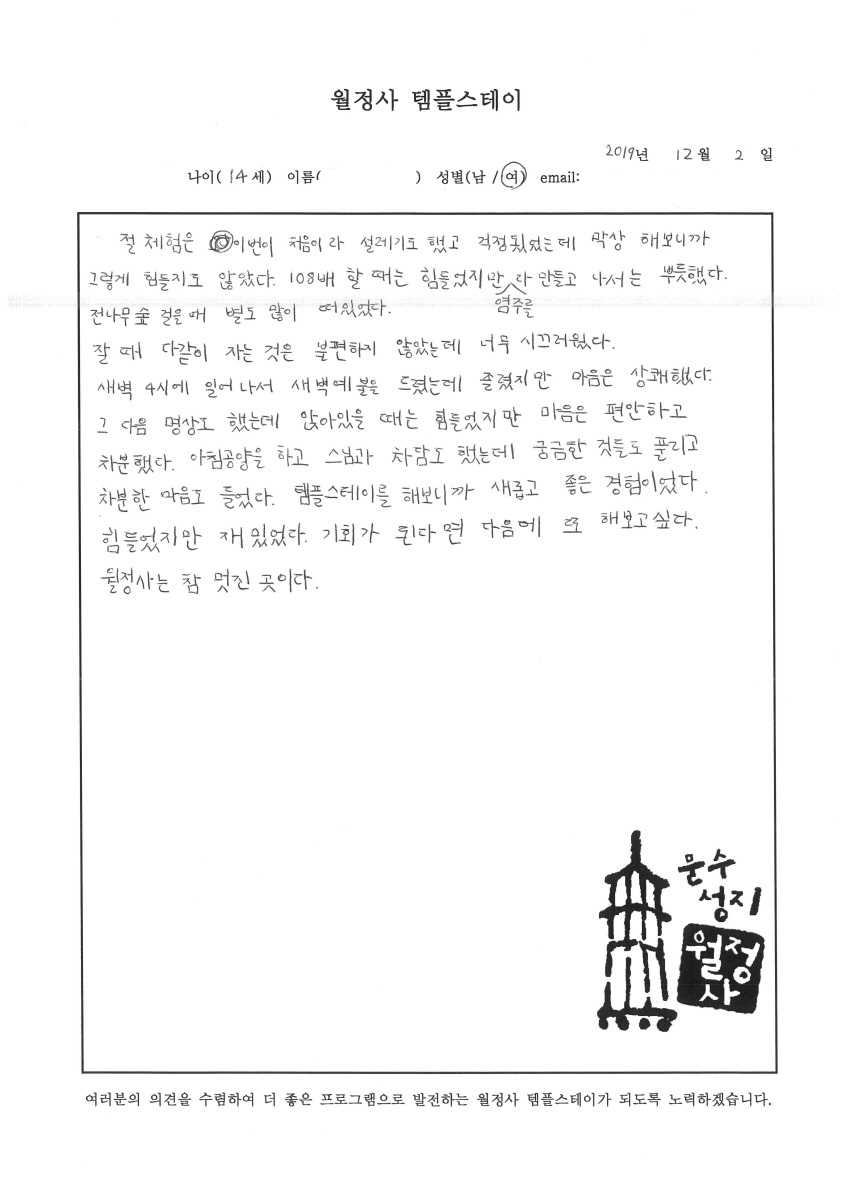 월정사 템플스테이
2019년 12월 2일
나이( 14세) 이름( ) 성별(남 / 여) email:
절 체험은 이번이 처음이라 설레기도 했고 걱정됬었는데 막상 해보니까
그렇게 힘들지도 않았다. 108배 할 때는 힘들었지만 염주를 다 만들고 나서는 뿌듯했다.
전나무숲 걸을 때 별도 많이 떠있었다.
잘 때 다같이 자는 것은 불편하지 않았는데 너무 시끄러웠다.
새벽 4시에 일어나서 새벽예불을 드렸는데 졸렸지만 마음은 상쾌했다.
그 다음 명상도 했는데 앉아있을 때는 힘들었지만 마음은 편안하고
차분했다. 아침공양을 하고 스님과 차담도 했는데 궁금한 것들도 풀리고
차분한 마음도 들었다. 템플스테이를 해보니까 새롭고 좋은 경험이었다.
힘들었지만 재밌었다. 기회가 된다면 다음에 또 해보고싶다.
월정사는 참 멋진 곳이다.
문수
성지
월정
사
여러분의 의견을 수렴하여 더 좋은 프로그램으로 발전하는 월정사 템플스테이가 되도록 노력하겠습니다.